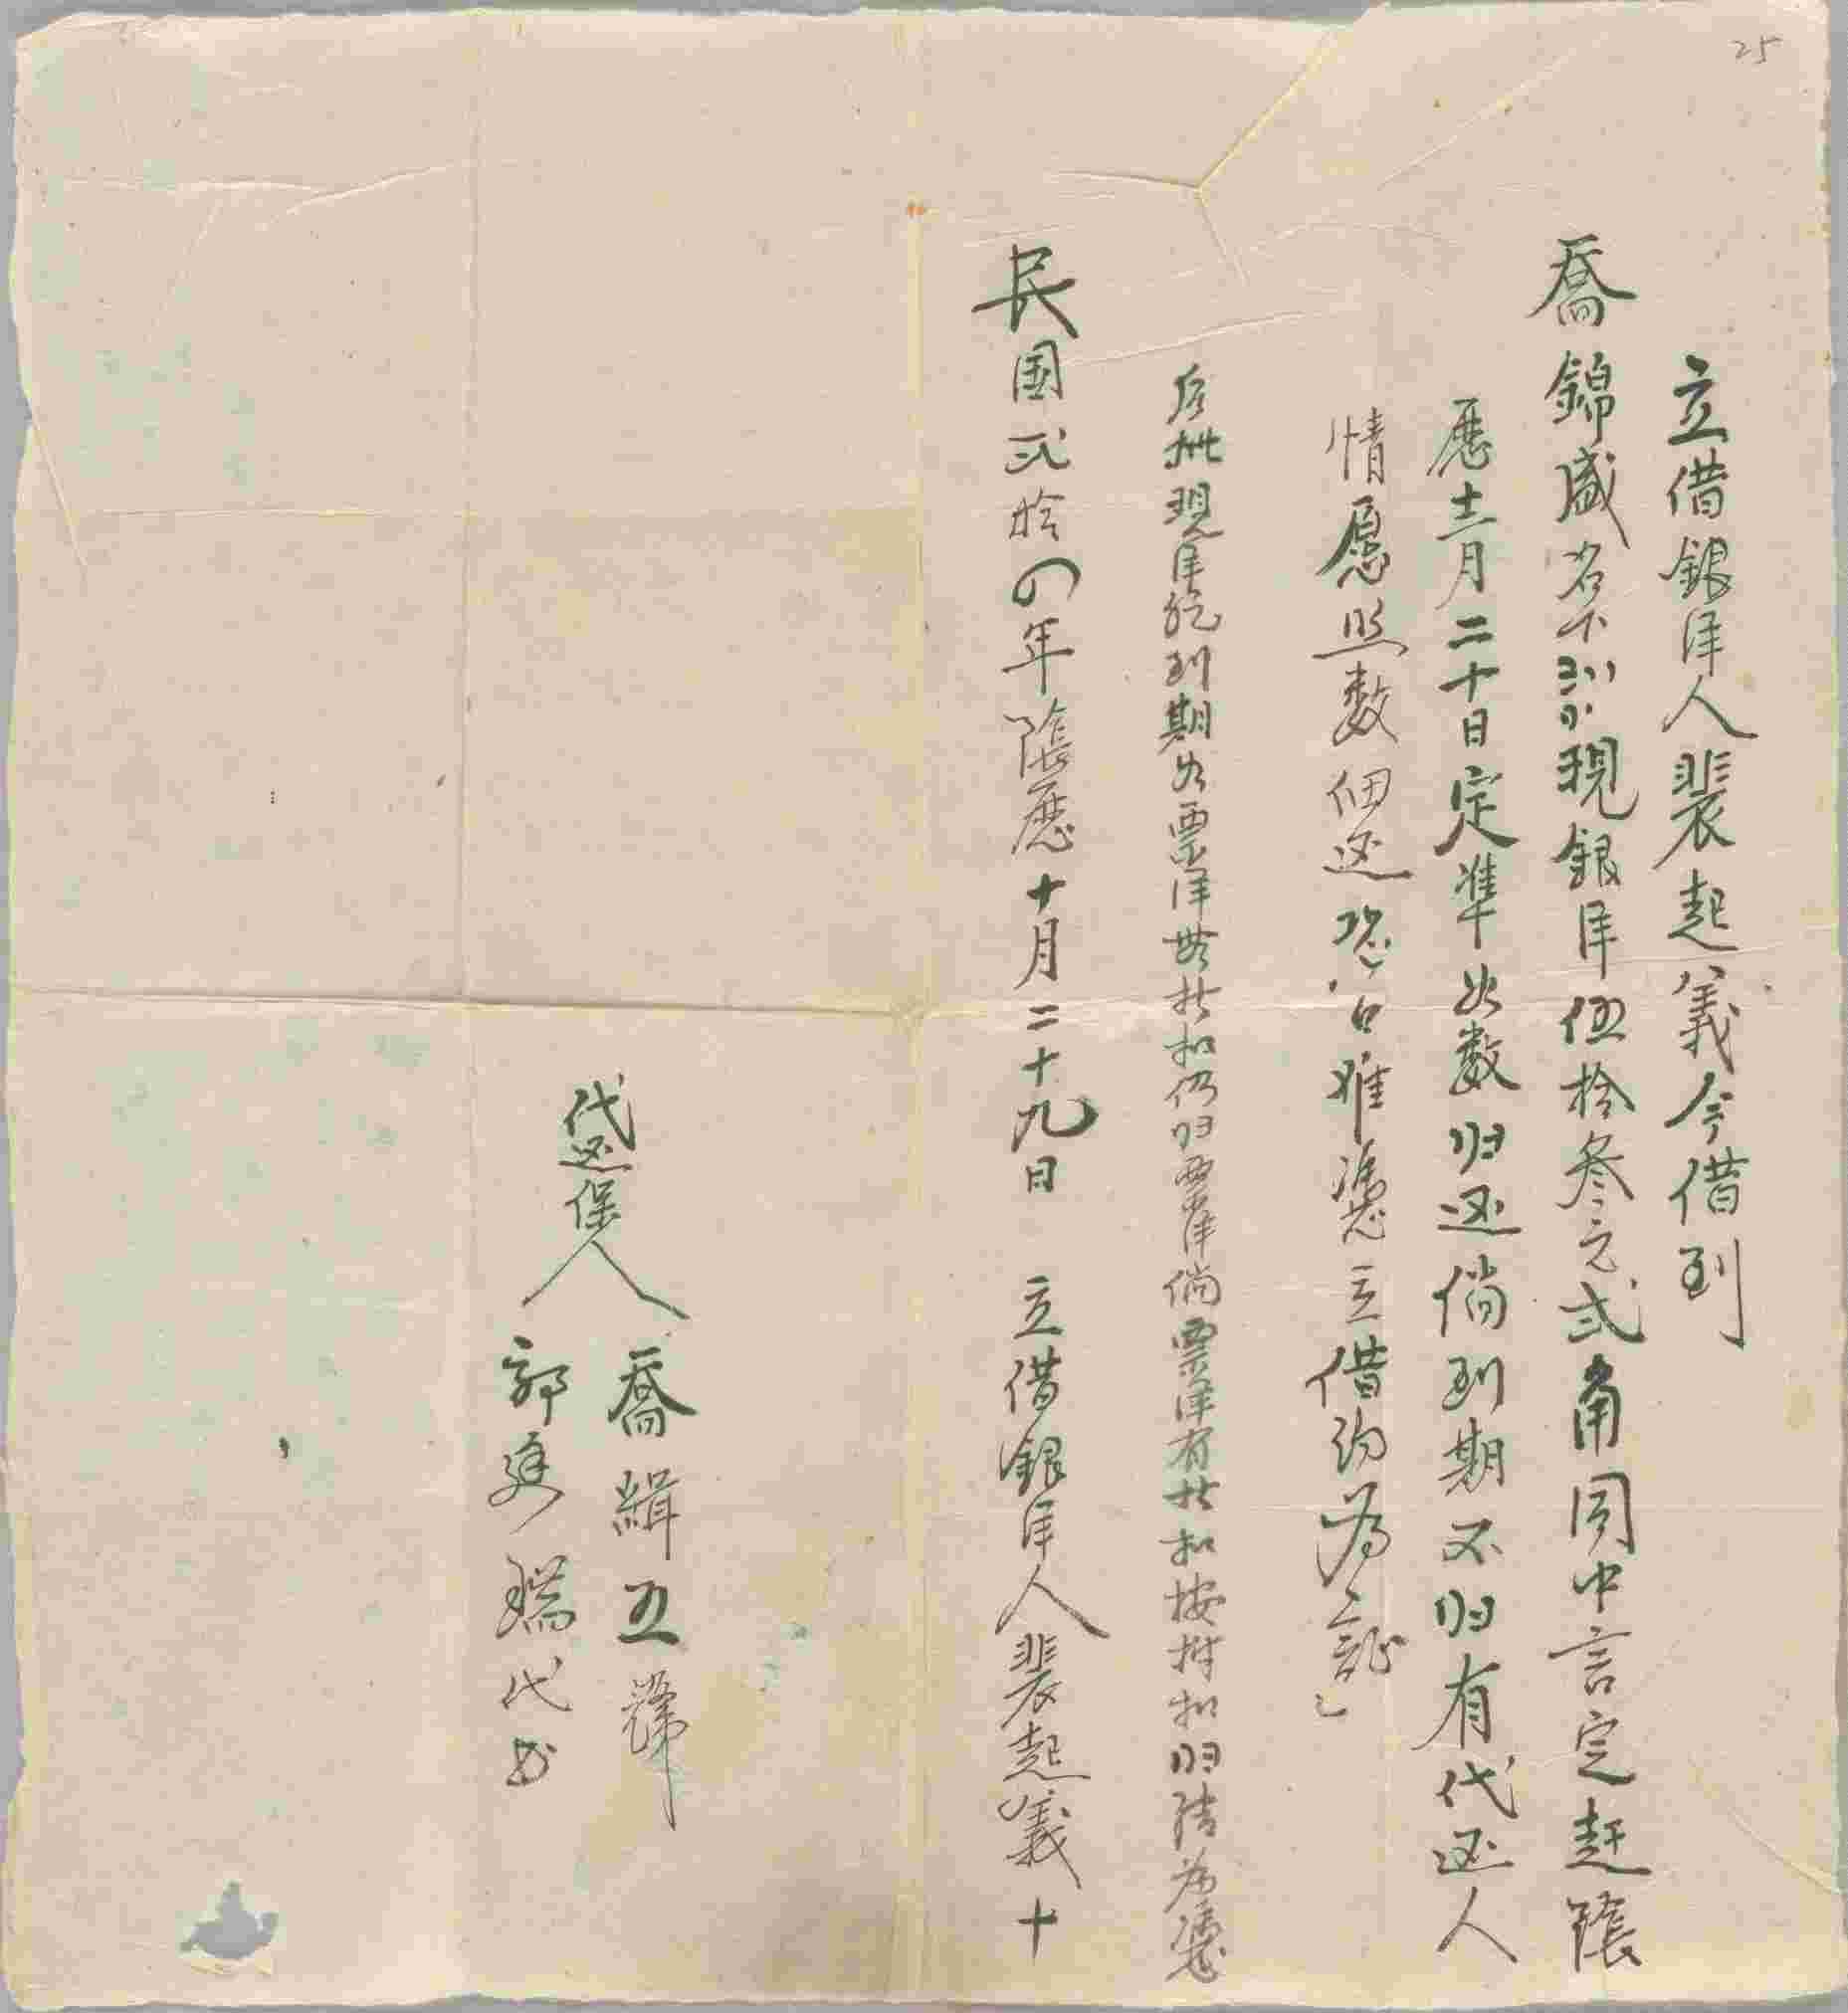 25
立借銀洋人裴起義今借到
喬錦盛名下現銀洋伍拾叁元弍角同中言定赶隂
歷十二月二十日定準如数归还倘到期不归有代还人
情愿照数佃还恐口难凴立借约为証
后批現洋訖到期如票洋無折扣仍归票洋倘票洋有折扣按折扣归结为凴
民国弍拾四年隂歷十月二十九日 立借銀洋人裴起義十
代还保人
喬緝五
郭廷瑞代书